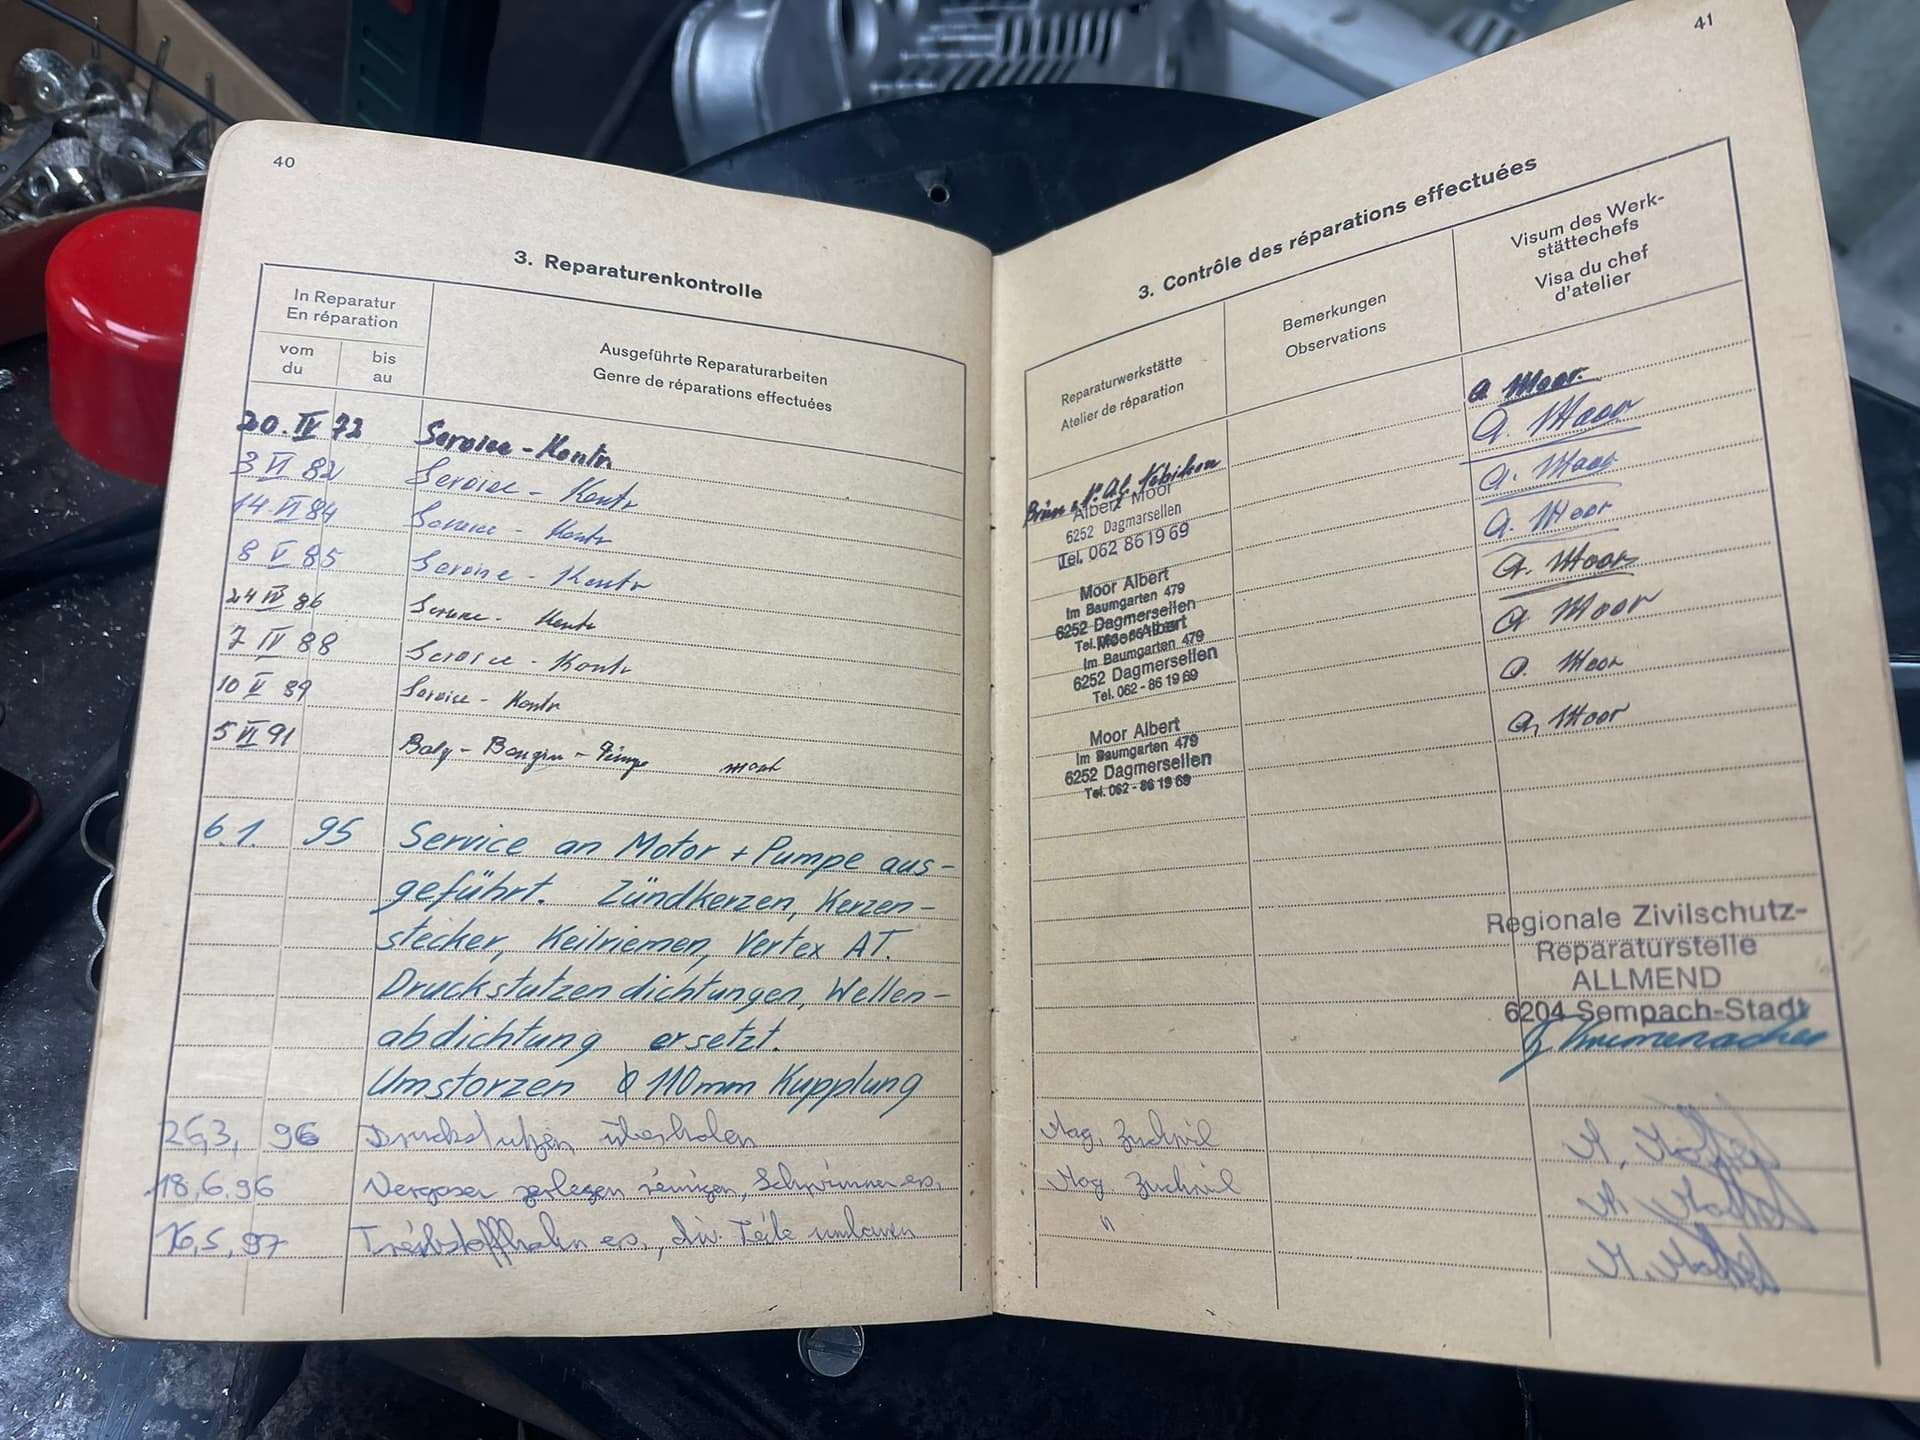 40
3. Reparaturenkontrolle
In Reparatur
En réparation
vom
du
bis
au
Ausgeführte Reparaturarbeiten
Genre de réparations effectuées
20. IV 72 Service - Kontr
3 VI 82 Service - Kontr
14. VI 84 Service - Kontr
8 V 85 Service - Kontr
24 IV 86 Service - Kontr
7 IV 88 Service - Kontr
10 V 89 Service - Kontr
5 VI 91 Benzin - Pumpe
6.1. 95 Service an Motor + Pumpe aus-
geführt. Zündkerzen, Kerzen-
stecker, Keilriemen, Vertex AT.
Druckstutzendichtungen, Wellen-
abdichtung ersetzt.
Umstorzen 110mm Kupplung
26,3, 96 Druckstutzen überholen
18.6.96 Vergaser zerlegen reinigen, Schwimmer ers.
16,5,97 Treibstoffhahn ers., div. Teile
41
3. Contrôle des réparations effectuées
Reparaturwerkstätte
Atelier de réparation
Bemerkungen
Observations
Visum des Werk-
stättechefs
Visa du chef
d'atelier
A. Moor.
A. Moor
A. Moor
A. Moor
A. Moor
A Moor
A. Moor
A. Moor
Albert Moor
6252 Dagmarsellen
Tel. 062 86 19 69
Moor Albert
Im Baumgarten 479
6252 Dagmersellen
Moor Albert
Im Baumgarten 479
6252 Dagmersellen
Tel. 062 - 86 19 69
Moor Albert
Im Baumgarten 479
6252 Dagmersellen
Tel. 062 - 86 19 69
Regionale Zivilschutz-
Reparaturstelle
ALLMEND
6204 Sempach-Stadt
Mag. Zuchwil
Mag. Zuchwil
"